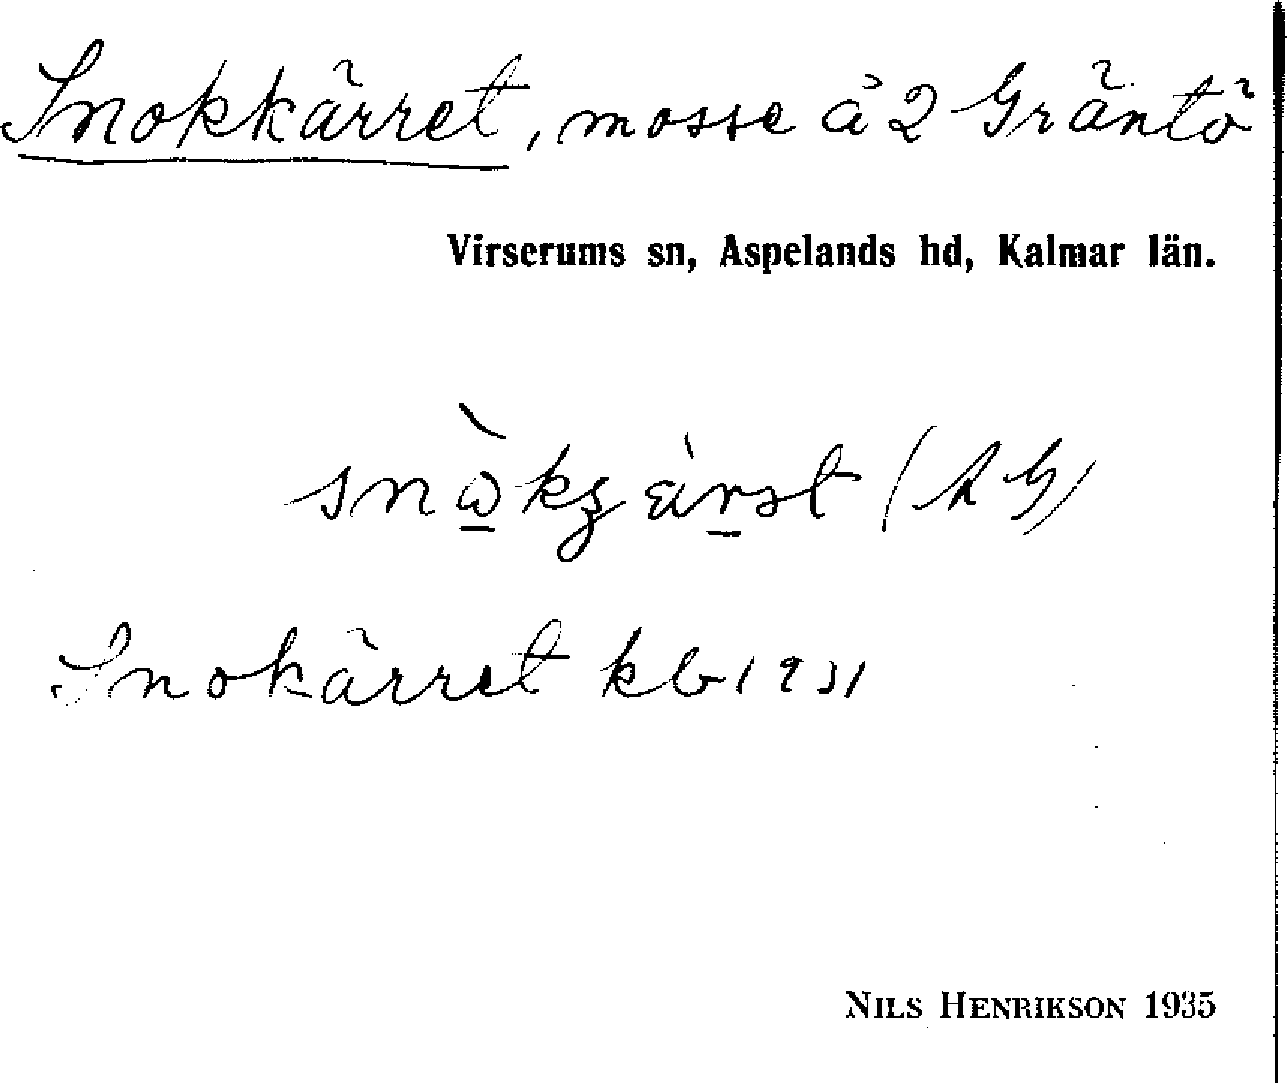 Snokkärret, mosse å 2 Gräntö
Virserums sn, Aspelands hd, Kalmar län.
Snokärret kb 1931
NILS HENRIKSON 1935